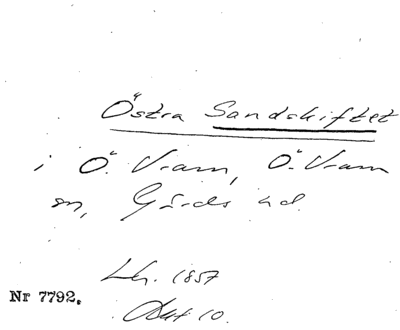 Östra Sandskiftet
i Ö. Vram, Ö. Vram
sn, Gärds hd.
Lh. 1857
Akt 10.
Nr 7792.